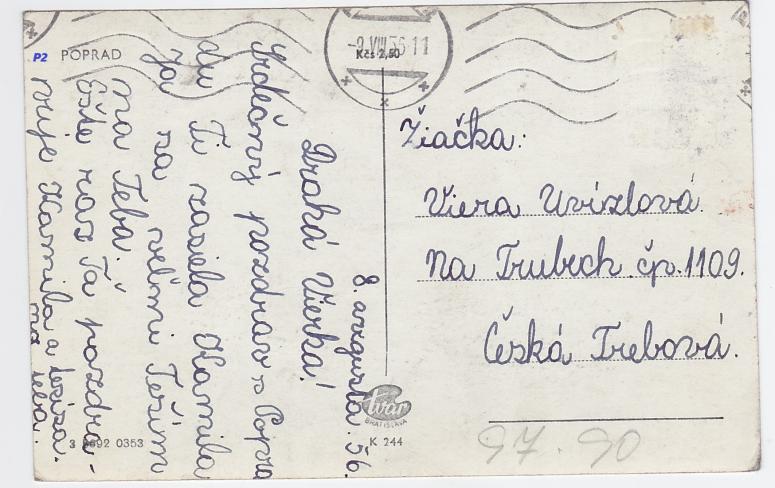 P2 POPRAD
-9.VIII.56 11
Kčs 2,50
8. augusta. 56.
Drahá Vierka!
Srdečný pozdrav z Popra
du Ti zasiela Kamila
Ja sa veľmi Teším
na Teba.
Ešte raz Ťa pozdra-
vuje Kamila a tešiza.
na teba.
Žiačka:
Viera Uvízlová
Na Trubech čp. 1109.
Česká Trebová.
tvar
BRATISLAVA
K 244
3 0353
97.90